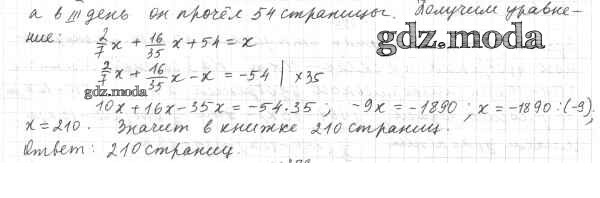 а в III день он прочёл 54 страницы. Получим уравне-
ние: 2/7 x + 16/35 x + 54 = x
gdz.moda
2/7 x + 16/35 x - x = -54 | ×35
gdz.moda
10x + 16x - 35x = -54·35; -9x = -1890; x = -1890:(-9);
x = 210. Значит в книжке 210 страниц.
Ответ: 210 страниц.